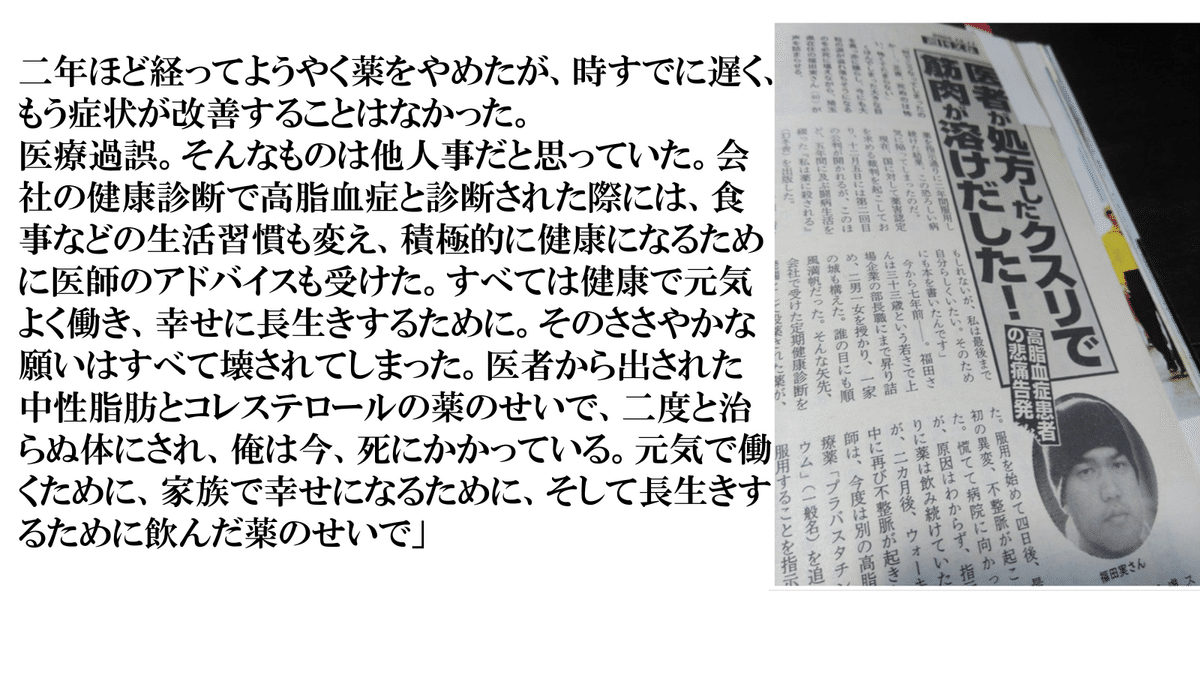 二年ほど経ってようやく薬をやめたが、時すでに遅く、
もう症状が改善することはなかった。
医療過誤。そんなものは他人事だと思っていた。会
社の健康診断で高脂血症と診断された際には、食
事などの生活習慣も変え、積極的に健康になるため
に医師のアドバイスも受けた。すべては健康で元気
よく働き、幸せに長生きするために。そのささやかな
願いはすべて壊されてしまった。医者から出された
中性脂肪とコレステロールの薬のせいで、二度と治
らぬ体にされ、俺は今、死にかかっている。元気で働
くために、家族で幸せになるために、そして長生きす
るために飲んだ薬のせいで」
医者が処方したクスリで
筋肉が溶けだした!
高脂血症患者
の悲痛告発
薬を指示通りに二年間服用し
続けた結果、この恐ろしい病
気に陥ってしまったのだ。
現在、国に対して薬害認定
を求める裁判を起こしてお
り、十二月五日には第二回目
の公判が開かれるが、このほ
ど、五年間に及ぶ闘病生活を
綴った「私は薬に殺される」
もしれないが、私は最後まで
自分らしくいたい。そのため
にも本を書いたんです」
今から七年前――。福田さ
んは三十三歳という若さで上
場企業の部長職にまで昇り詰
め、二男一女を授かり、一家
の城も構えた。誰の目にも順
風満帆だった。そんな矢先、
会社で受けた定期健康診断を
た。服用を始めて四日後、最
初の異変、不整脈が起こっ
た。慌てて病院に向かった
が、原因はわからず、指示通
りに薬は飲み続けていた
が、二カ月後、ウォーキ
中に再び不整脈が起き
師は、今度は別の高脂
療薬「プラバスタチン
ウム」(一般名)を追
服用することを指示
福田実さん